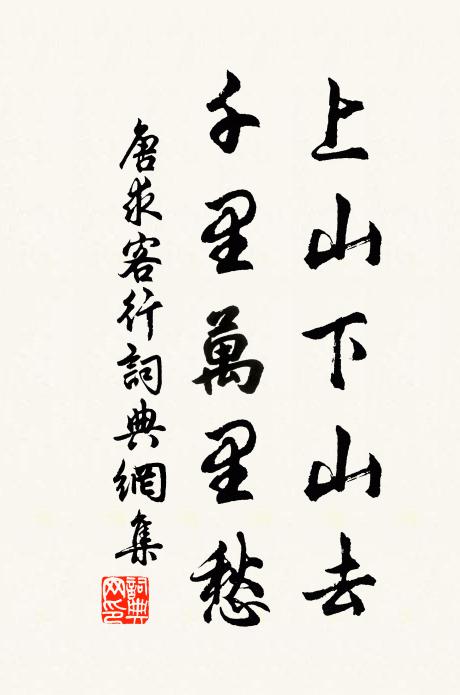 上山下山去
千里萬里愁
唐求客行詞典網集
詞典
网印